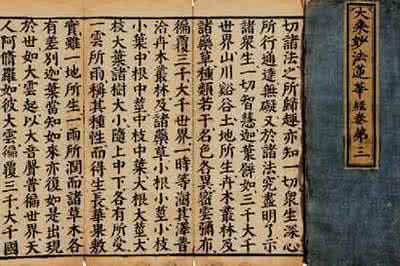 大乘妙法蓮華經卷第三
切諸法之所歸趣亦知一切眾生深心
所行通達無礙又於諸法究盡明了示
諸眾生一切智慧迦葉譬如三千大千
世界山川谿谷土地所生卉木叢林及
諸藥草種類若干名色各異密雲彌布
徧覆三千大千世界一時等澍其澤普
洽卉木叢林及諸藥草小根小莖小枝
小葉中根中莖中枝中葉大根大莖大
枝大葉諸樹大小隨上中下各有所受
一雲所雨稱其種性而得生長華果敷
實雖一地所生一雨所潤而諸草木各
有差別迦葉當知如來亦復如是出現
於世如大雲起以大音聲普徧世界天
人阿脩羅如彼大雲徧覆三千大千國